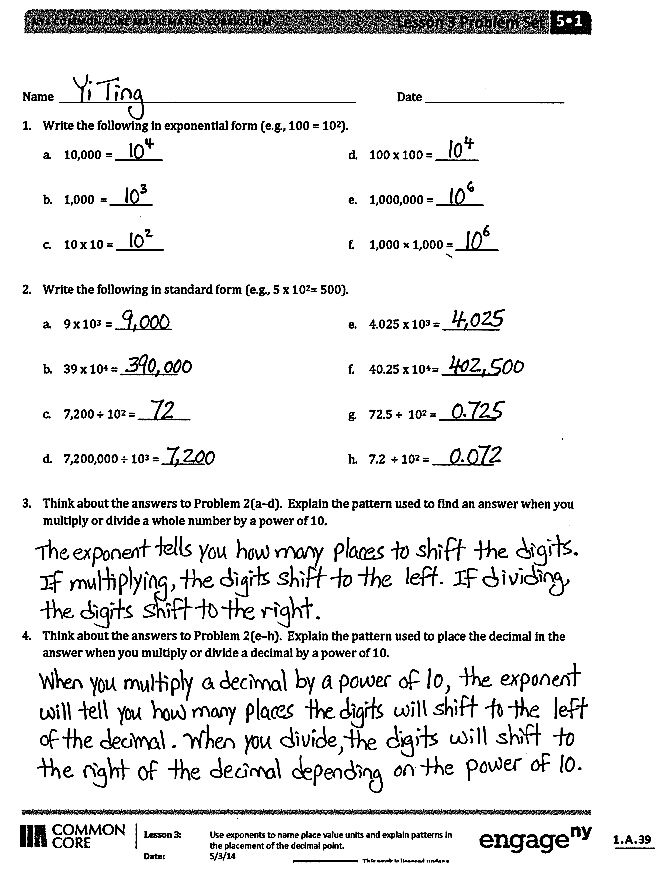 NYS COMMON CORE MATHEMATICS CURRICULUM Lesson 3 Problem Set 5•1
Name Yi Ting Date
1. Write the following in exponential form (e.g., 100 = 10²).
a. 10,000 = 10⁴ d. 100 x 100 = 10⁴
b. 1,000 = 10³ e. 1,000,000 = 10⁶
c. 10 x 10 = 10² f. 1,000 × 1,000 = 10⁶
2. Write the following in standard form (e.g., 5 x 10² = 500).
a. 9 x 10³ = 9,000 e. 4.025 x 10³ = 4,025
b. 39 x 10⁴ = 390,000 f. 40.25 x 10⁴ = 402,500
c. 7,200 ÷ 10² = 72 g. 72.5 ÷ 10² = 0.725
d. 7,200,000 ÷ 10³ = 7,200 h. 7.2 ÷ 10² = 0.072
3. Think about the answers to Problem 2(a–d). Explain the pattern used to find an answer when you
multiply or divide a whole number by a power of 10.
The exponent tells you how many places to shift the digits.
If multiplying, the digits shift to the left. If dividing,
the digits shift to the right.
4. Think about the answers to Problem 2(e–h). Explain the pattern used to place the decimal in the
answer when you multiply or divide a decimal by a power of 10.
When you multiply a decimal by a power of 10, the exponent
will tell you how many places the digits will shift to the left
of the decimal. When you divide, the digits will shift to
the right of the decimal depending on the power of 10.
COMMON CORE
Lesson 3: Use exponents to name place value units and explain patterns in
the placement of the decimal point.
Date: 5/3/14
engage ny
1.A.39